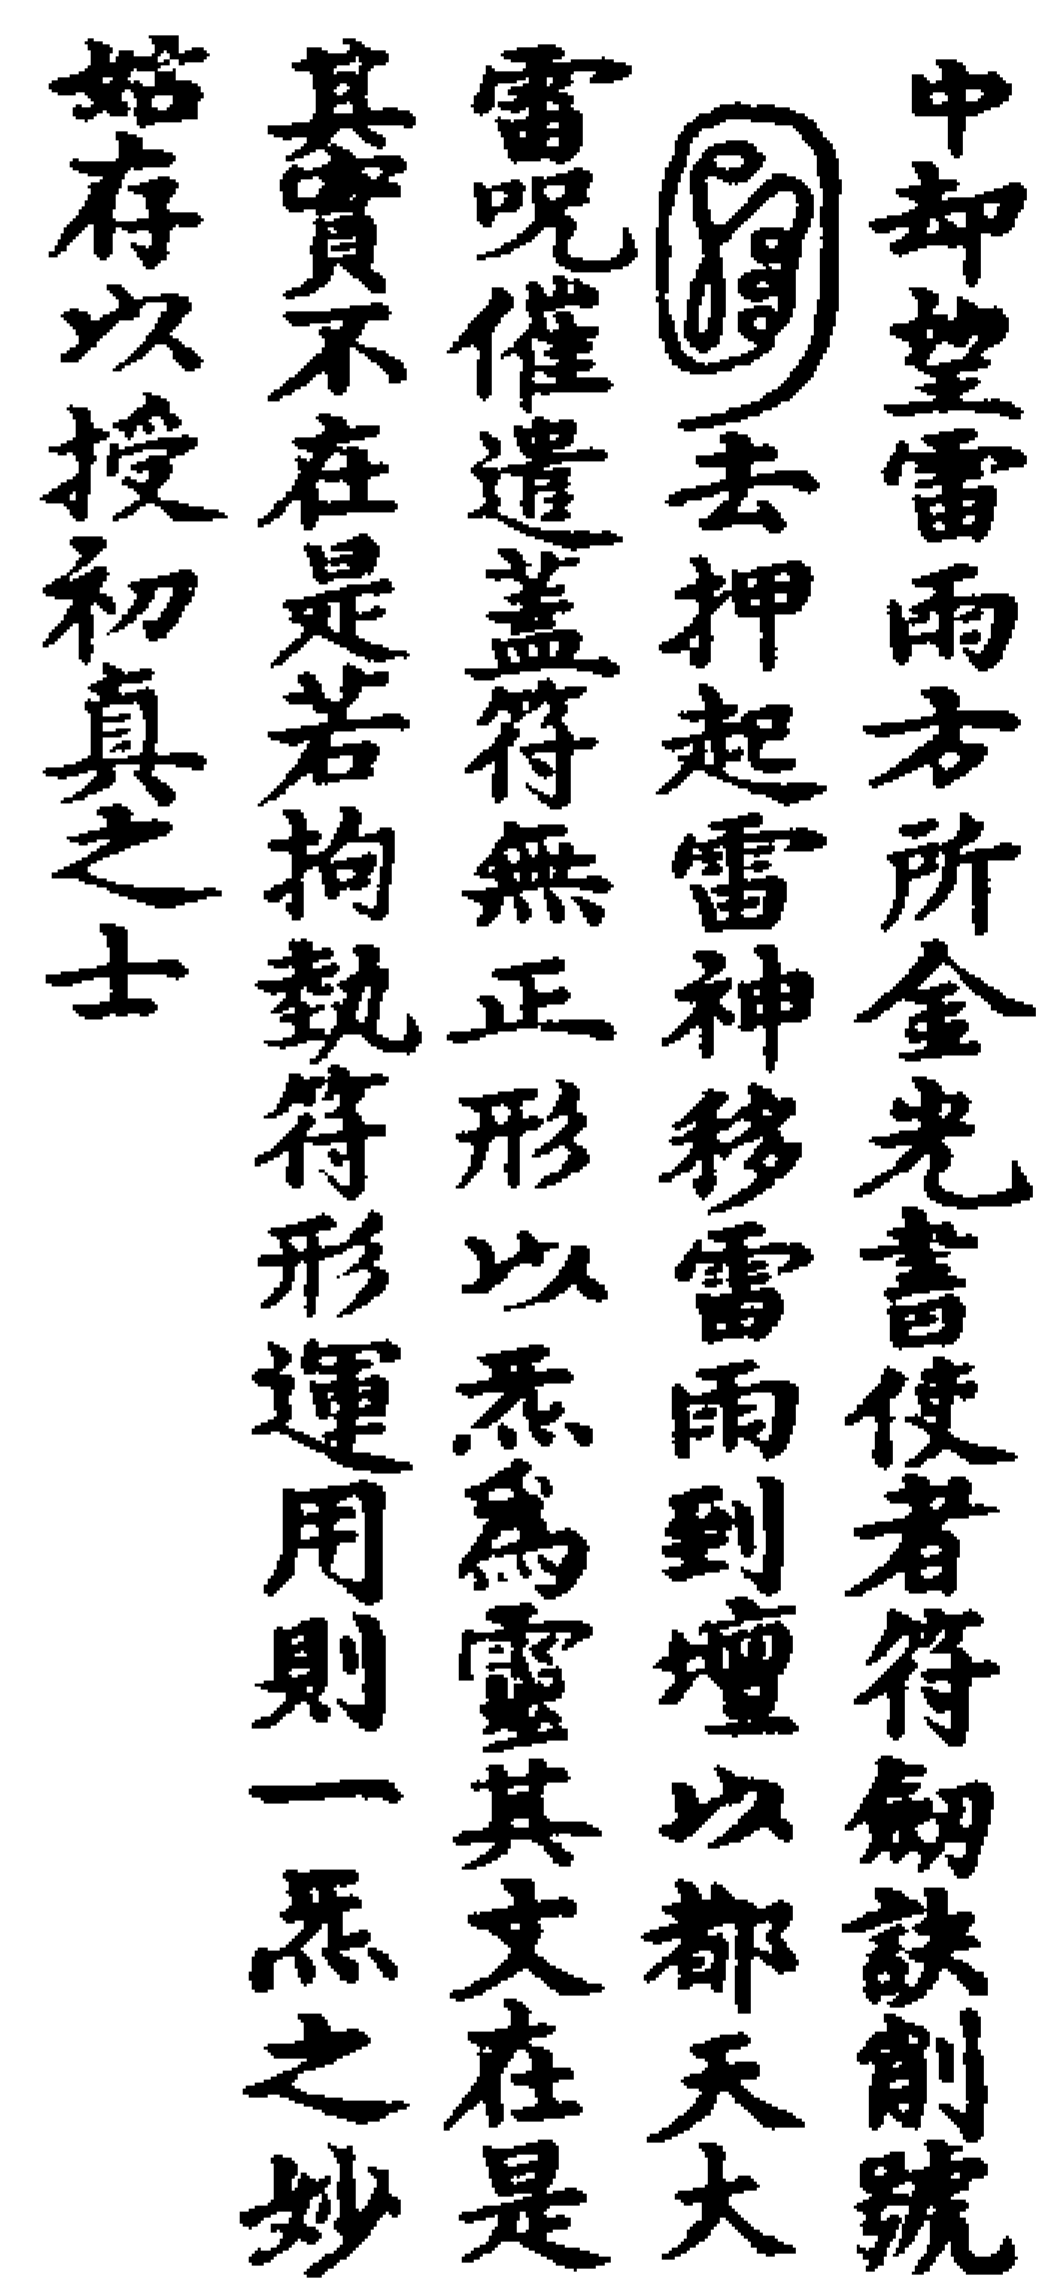 中却望雷雨方所金光書使者符劒訣削號
去押起雷神移雷雨到壇以都天大
雷呪催遣蓋符無正形以炁爲靈其文在是
其實不在是若拘執符形運用則一炁之妙
姑存以授初真之士